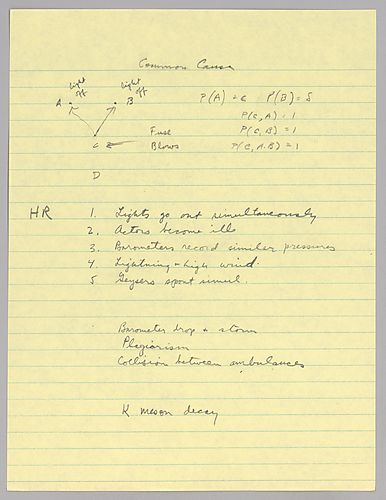 Common Cause
Light off Light off
A B P(A) = ε P(B) = δ
P(C, A) = 1
Fuse P(C, B) = 1
C Blows P(C, A.B) = 1
D
HR 1. Lights go out simultaneously
2. Actors become ill
3. Barometers record similar pressures
4. Lightning + high wind.
5 Geysers spout
Barometer drop + storm
Plagiarism
Collision between ambulances
K meson decay